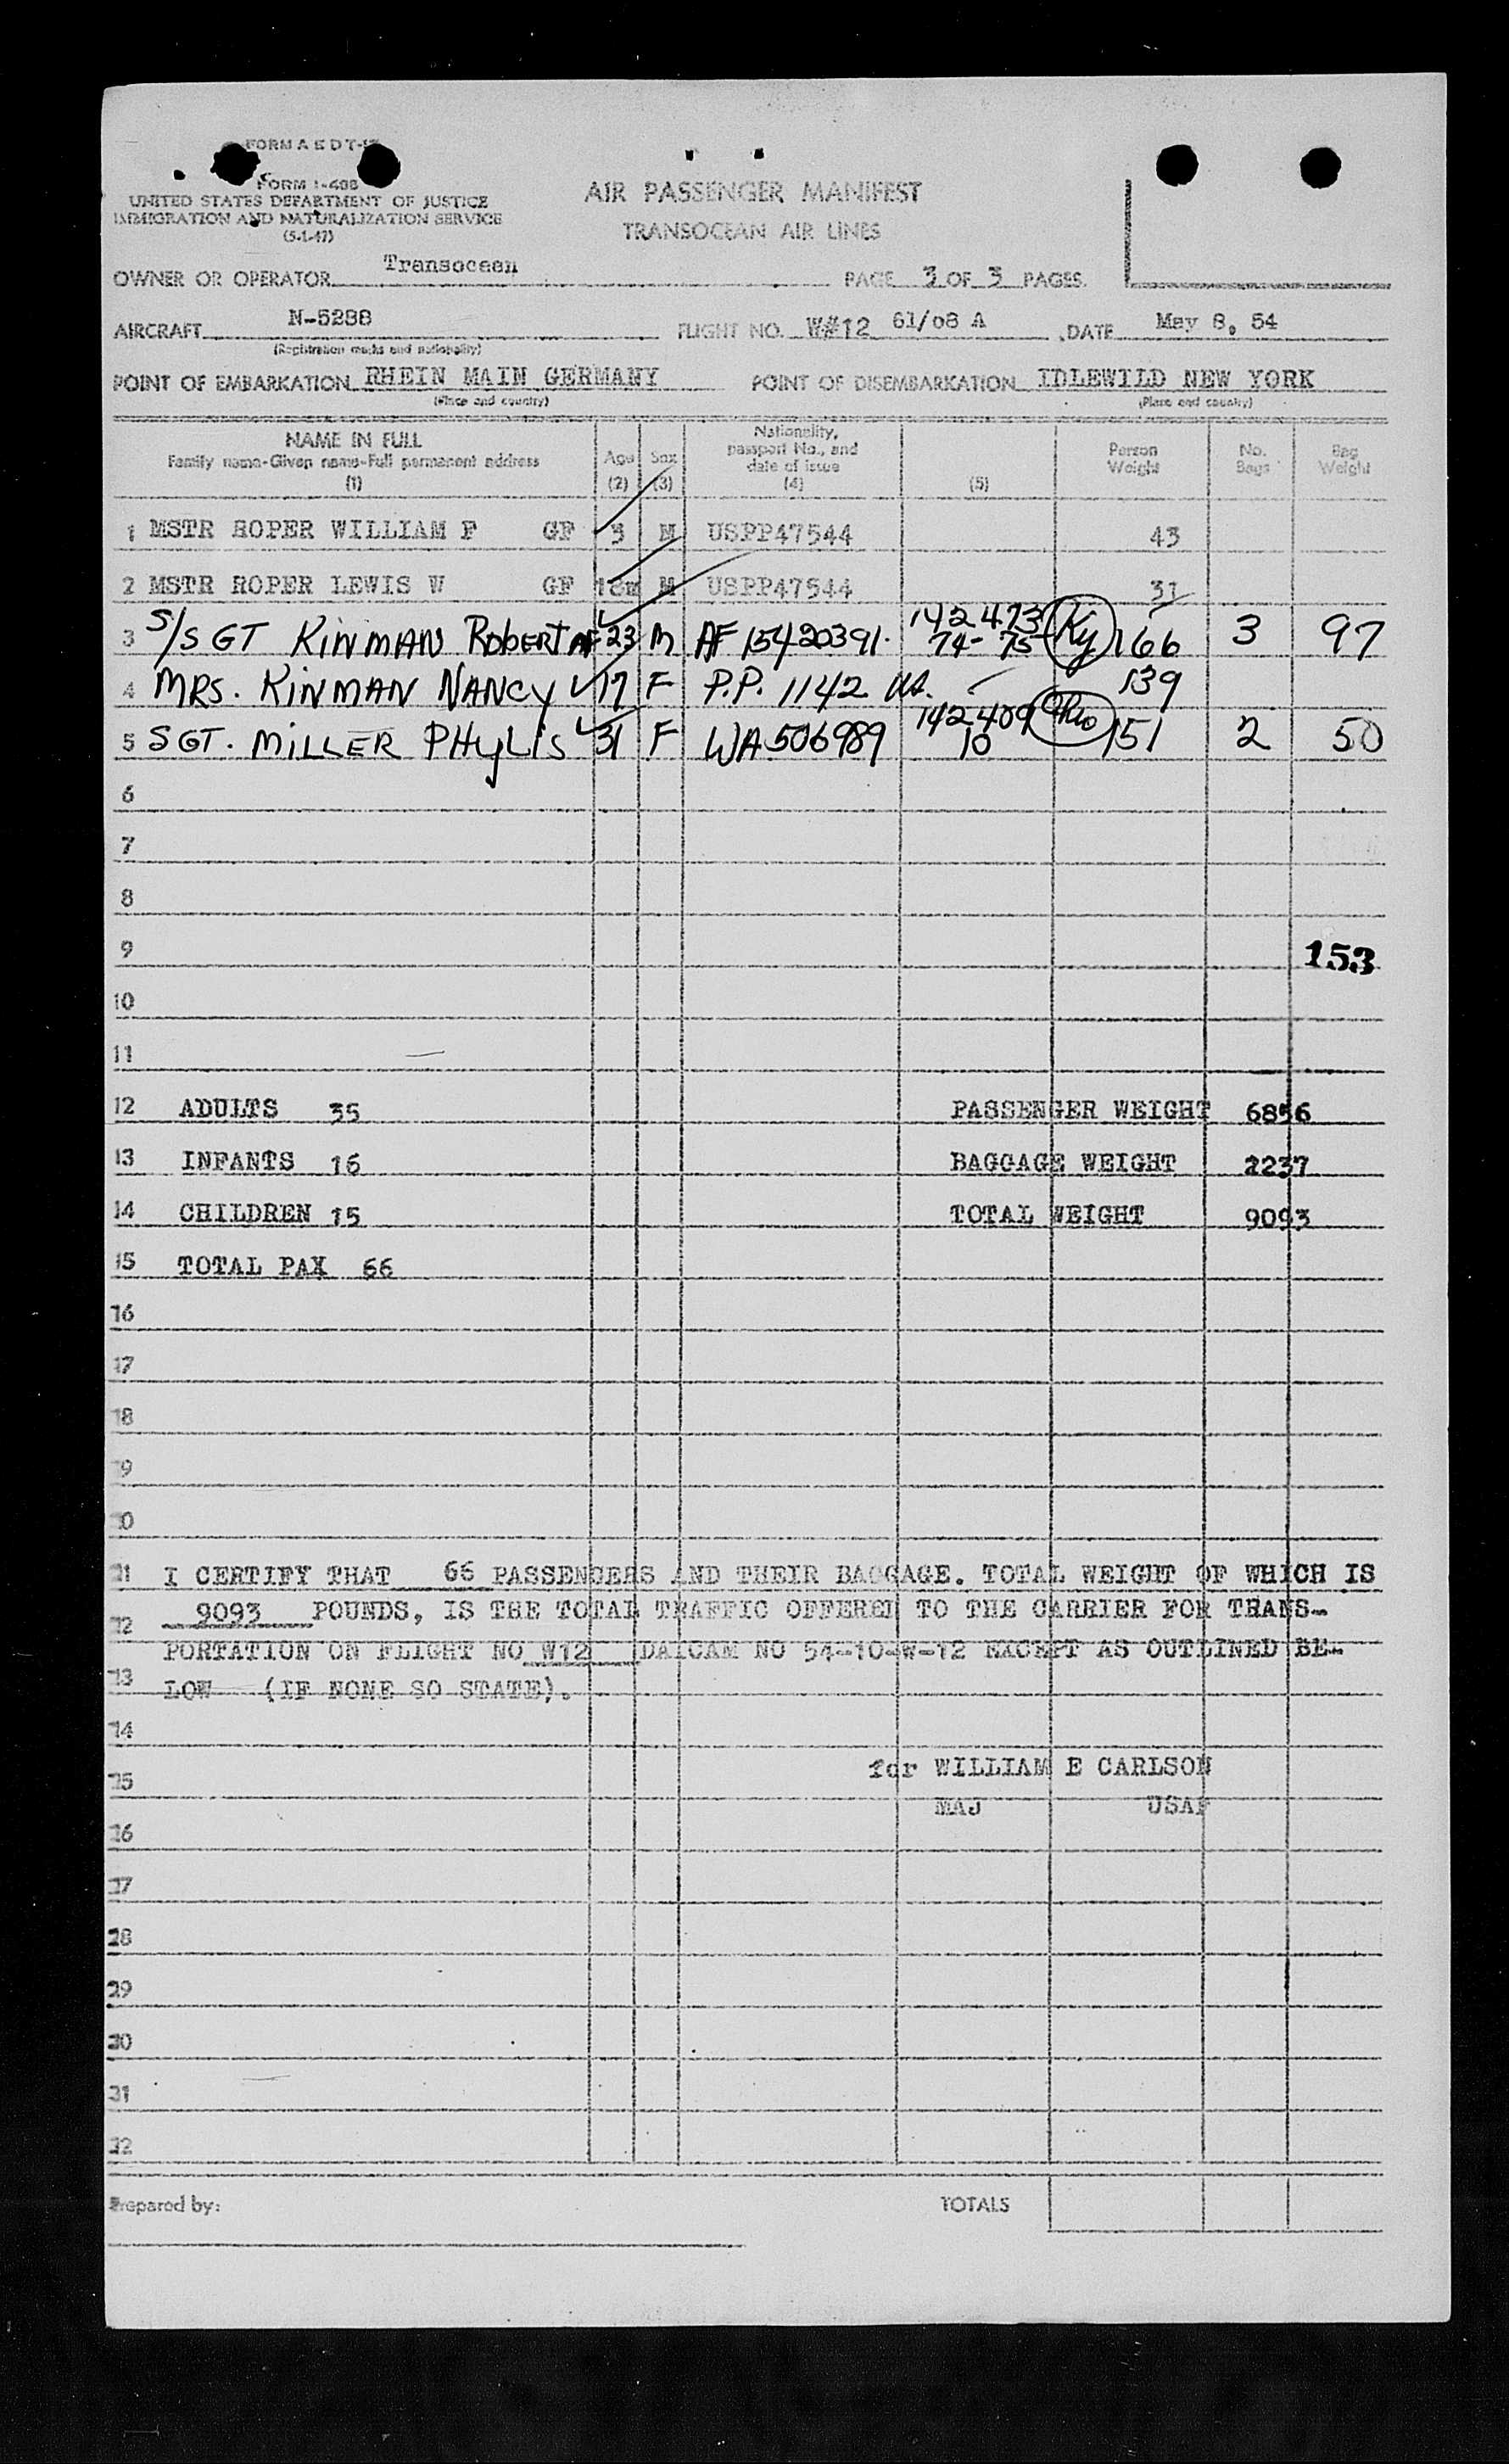 FORM A E D T-
FORM I-488
UNITED STATES DEPARTMENT OF JUSTICE
IMMIGRATION AND NATURALIZATION SERVICE
(5-1-47)
AIR PASSENGER MANIFEST
TRANSOCEAN AIR LINES
OWNER OR OPERATOR Transocean PAGE 3 OF 3 PAGES.
AIRCRAFT N-5288 FLIGHT NO. W#12 61/08 A , DATE May 8, 54
(Registration marks and nationality)
POINT OF EMBARKATION RHEIN MAIN GERMANY POINT OF DISEMBARKATION IDLEWILD NEW YORK
(Place and country) (Place and country)
NAME IN FULL Family name-Given name-Full permanent address (1) Age (2) Sex (3) Nationality, passport No., and date of issue (4) (5) Person Weight No. Bags Bag Weight
1 MSTR ROPER WILLIAM F GF 3 M USPP47544 43
2 MSTR ROPER LEWIS W GF 18m M USPP47544 31
3 S/SGT KINMAN ROBERT AF 23 M AF 15420391. 142473 74- 75 Ky 166 3 97
4 MRS. KINMAN NANCY 17 F P.P. 1142 US. 139
5 SGT. MILLER PHYLIS 31 F WA 506989 142409 10 Ohio 151 2 50
6
7
8
9 153
10
11
12 ADULTS 35 PASSENGER WEIGHT 6856
13 INFANTS 16 BAGGAGE WEIGHT 2237
14 CHILDREN 15 TOTAL WEIGHT 9093
15 TOTAL PAX 66
16
17
18
19
20
21 I CERTIFY THAT 66 PASSENGERS AND THEIR BAGGAGE. TOTAL WEIGHT OF WHICH IS
22 9093 POUNDS, IS THE TOTAL TRAFFIC OFFERED TO THE CARRIER FOR TRANS-
PORTATION ON FLIGHT NO W12 DAICAM NO 54-10-W-12 EXCEPT AS OUTLINED BE-
23 LOW (IF NONE SO STATE).
24
for WILLIAM E CARLSON
25
MAJ USAF
26
27
28
29
30
31
32
Prepared by: TOTALS